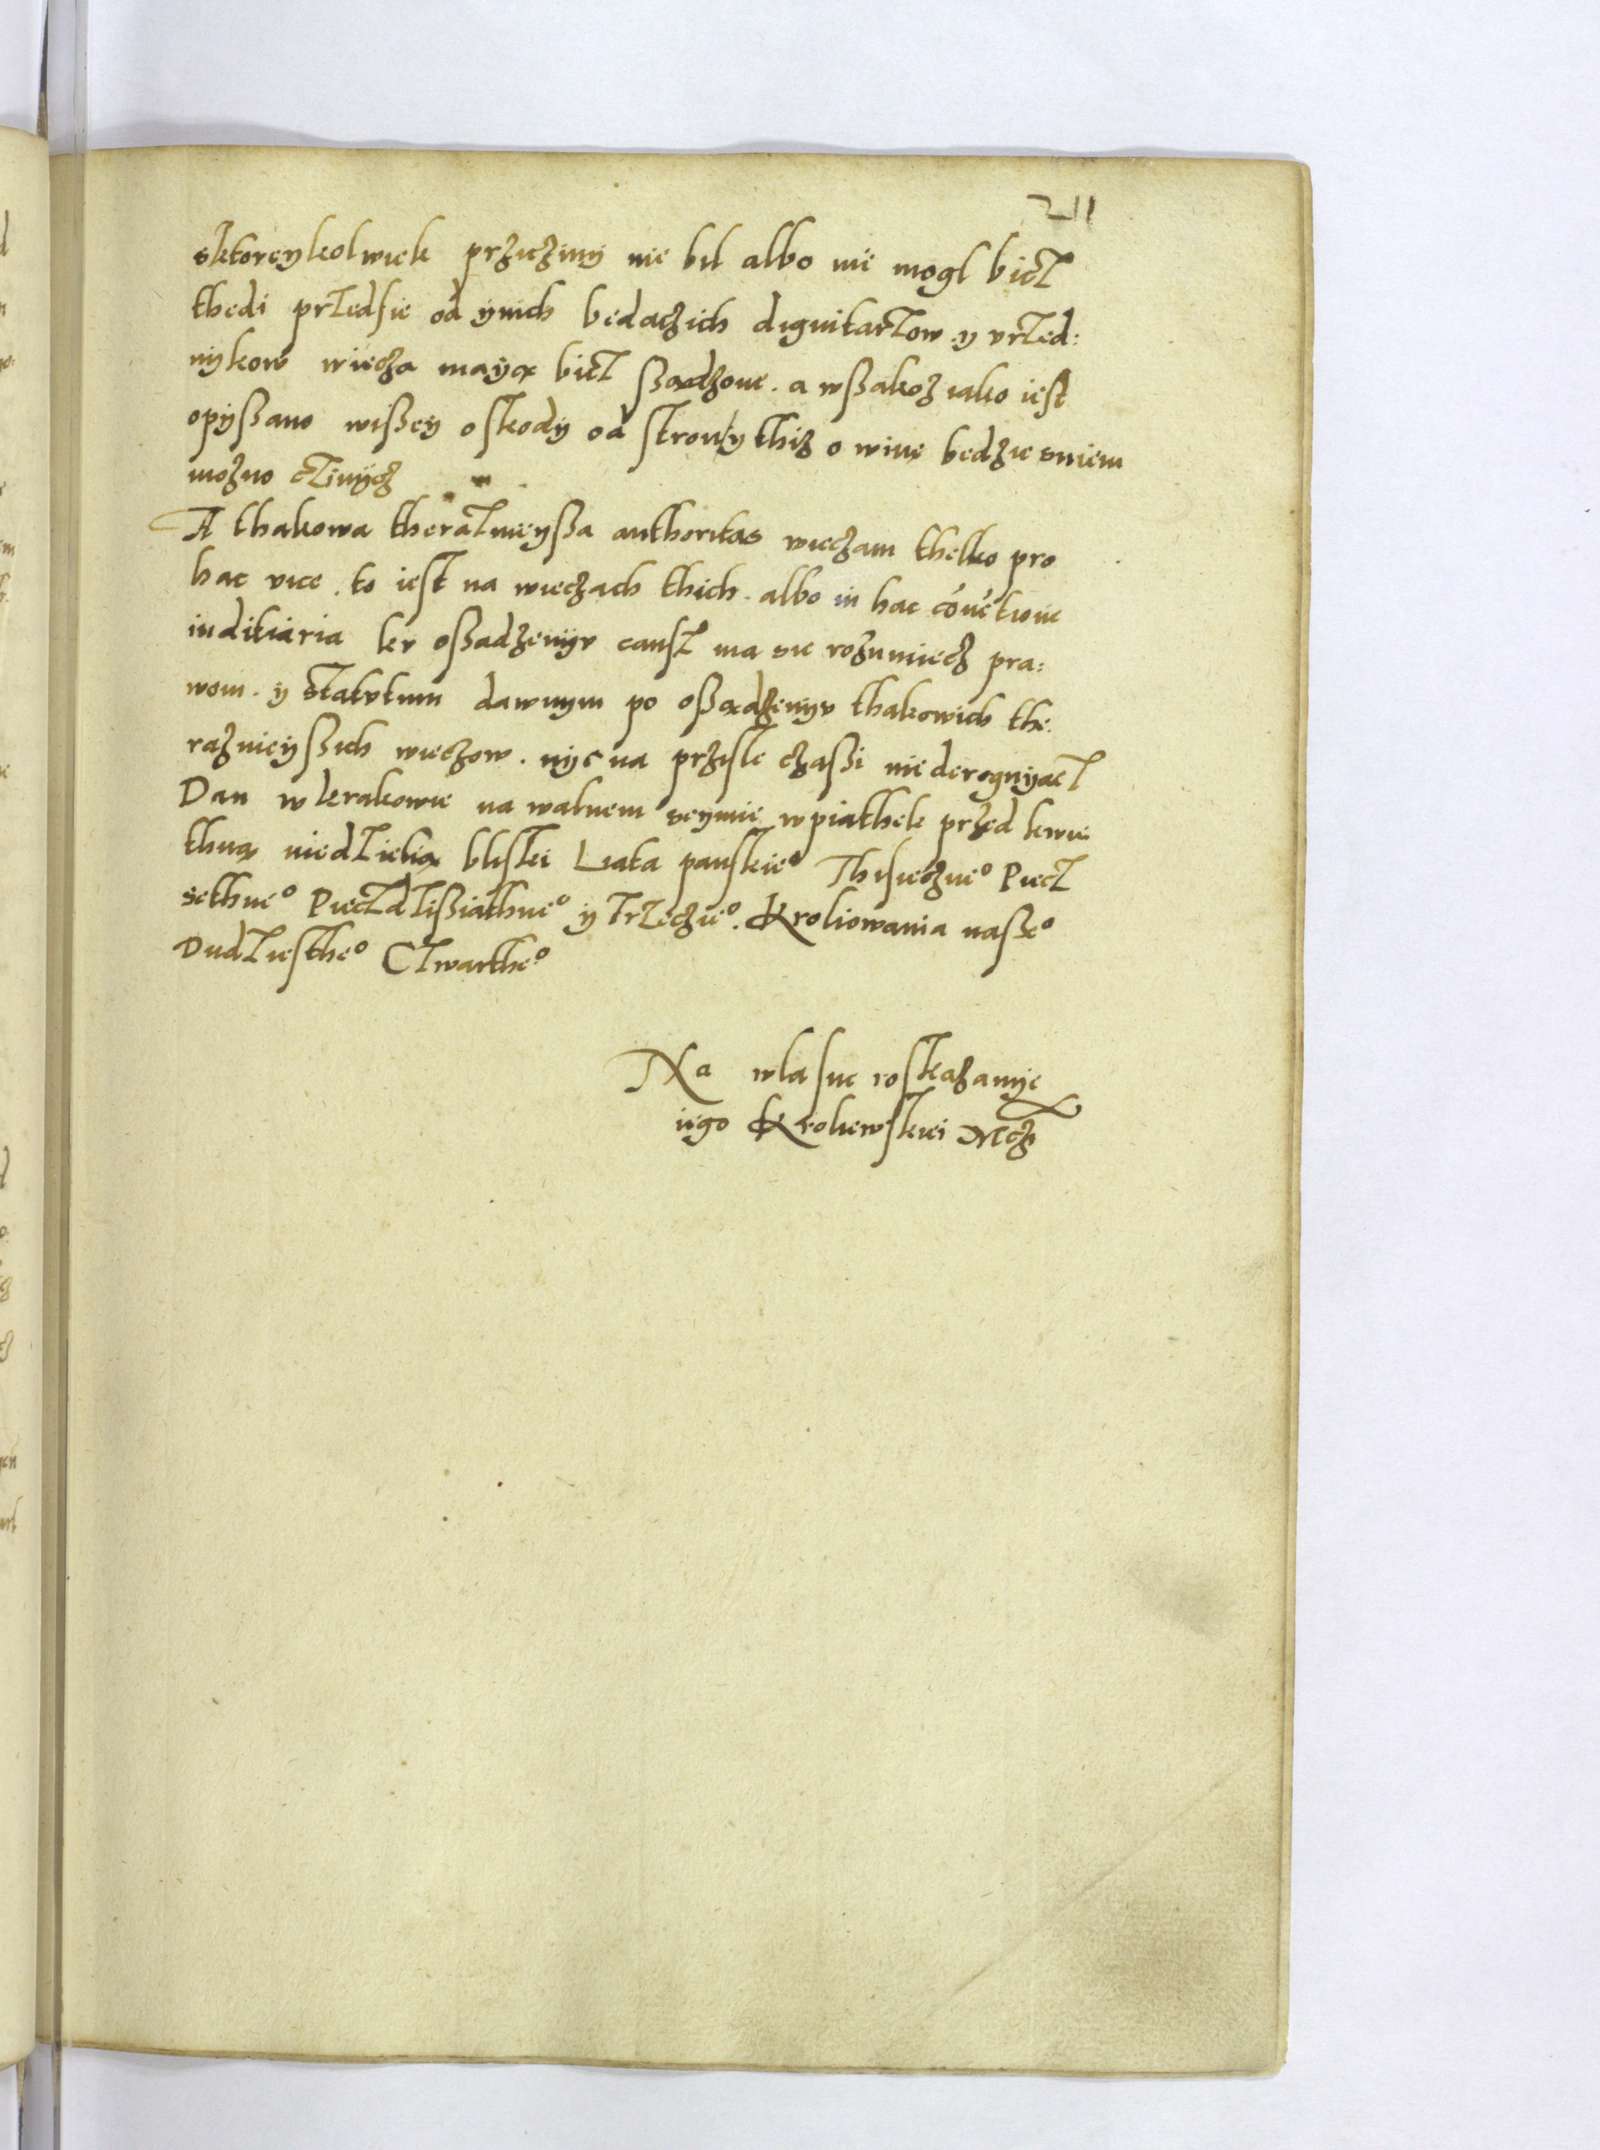 211
sktoreykolwiek przicziny nie bil albo nie mogl bicz
thedi przedsie od ynich bedaczich dignitarzow y vrzed:
nykow wiecza mayą bicz ßądzone . a wßakoz iako iest
opyßano wißey o skody od strony thiz o winę bedzie sniem
mozno czinycz
A thakowa theraznieyßa authoritas wieczam thelko pro
hac vice . to iest na wieczach thich . albo in hac cōuētione
iuditiaria ku oßadzenyv causz ma sie rozumiecz pra:
wom . y statutum dawnym po oßądzenyv thakowich the:
raznieyßich wieczow . nyc na przisle czaßi nie deroguyacz
Dan w krakowie na walnem seymie w piathek przed kwie
thną niedzielią bliski Liata panskieº Thisiecznеº Piecz
sethneº Pieczdzißiathneº y Trzecieº. Kroliowania naßeº
Dudziestheº Czwartheº
Na wlasne roskazanye
iego Kroliewskiei Mczi